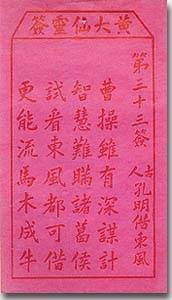 黃大仙靈簽
第三十三簽
古人 孔明借東風
曹操雖有深謀計
智慧難瞞諸葛侯
試看東風都可借
更能流馬木成牛